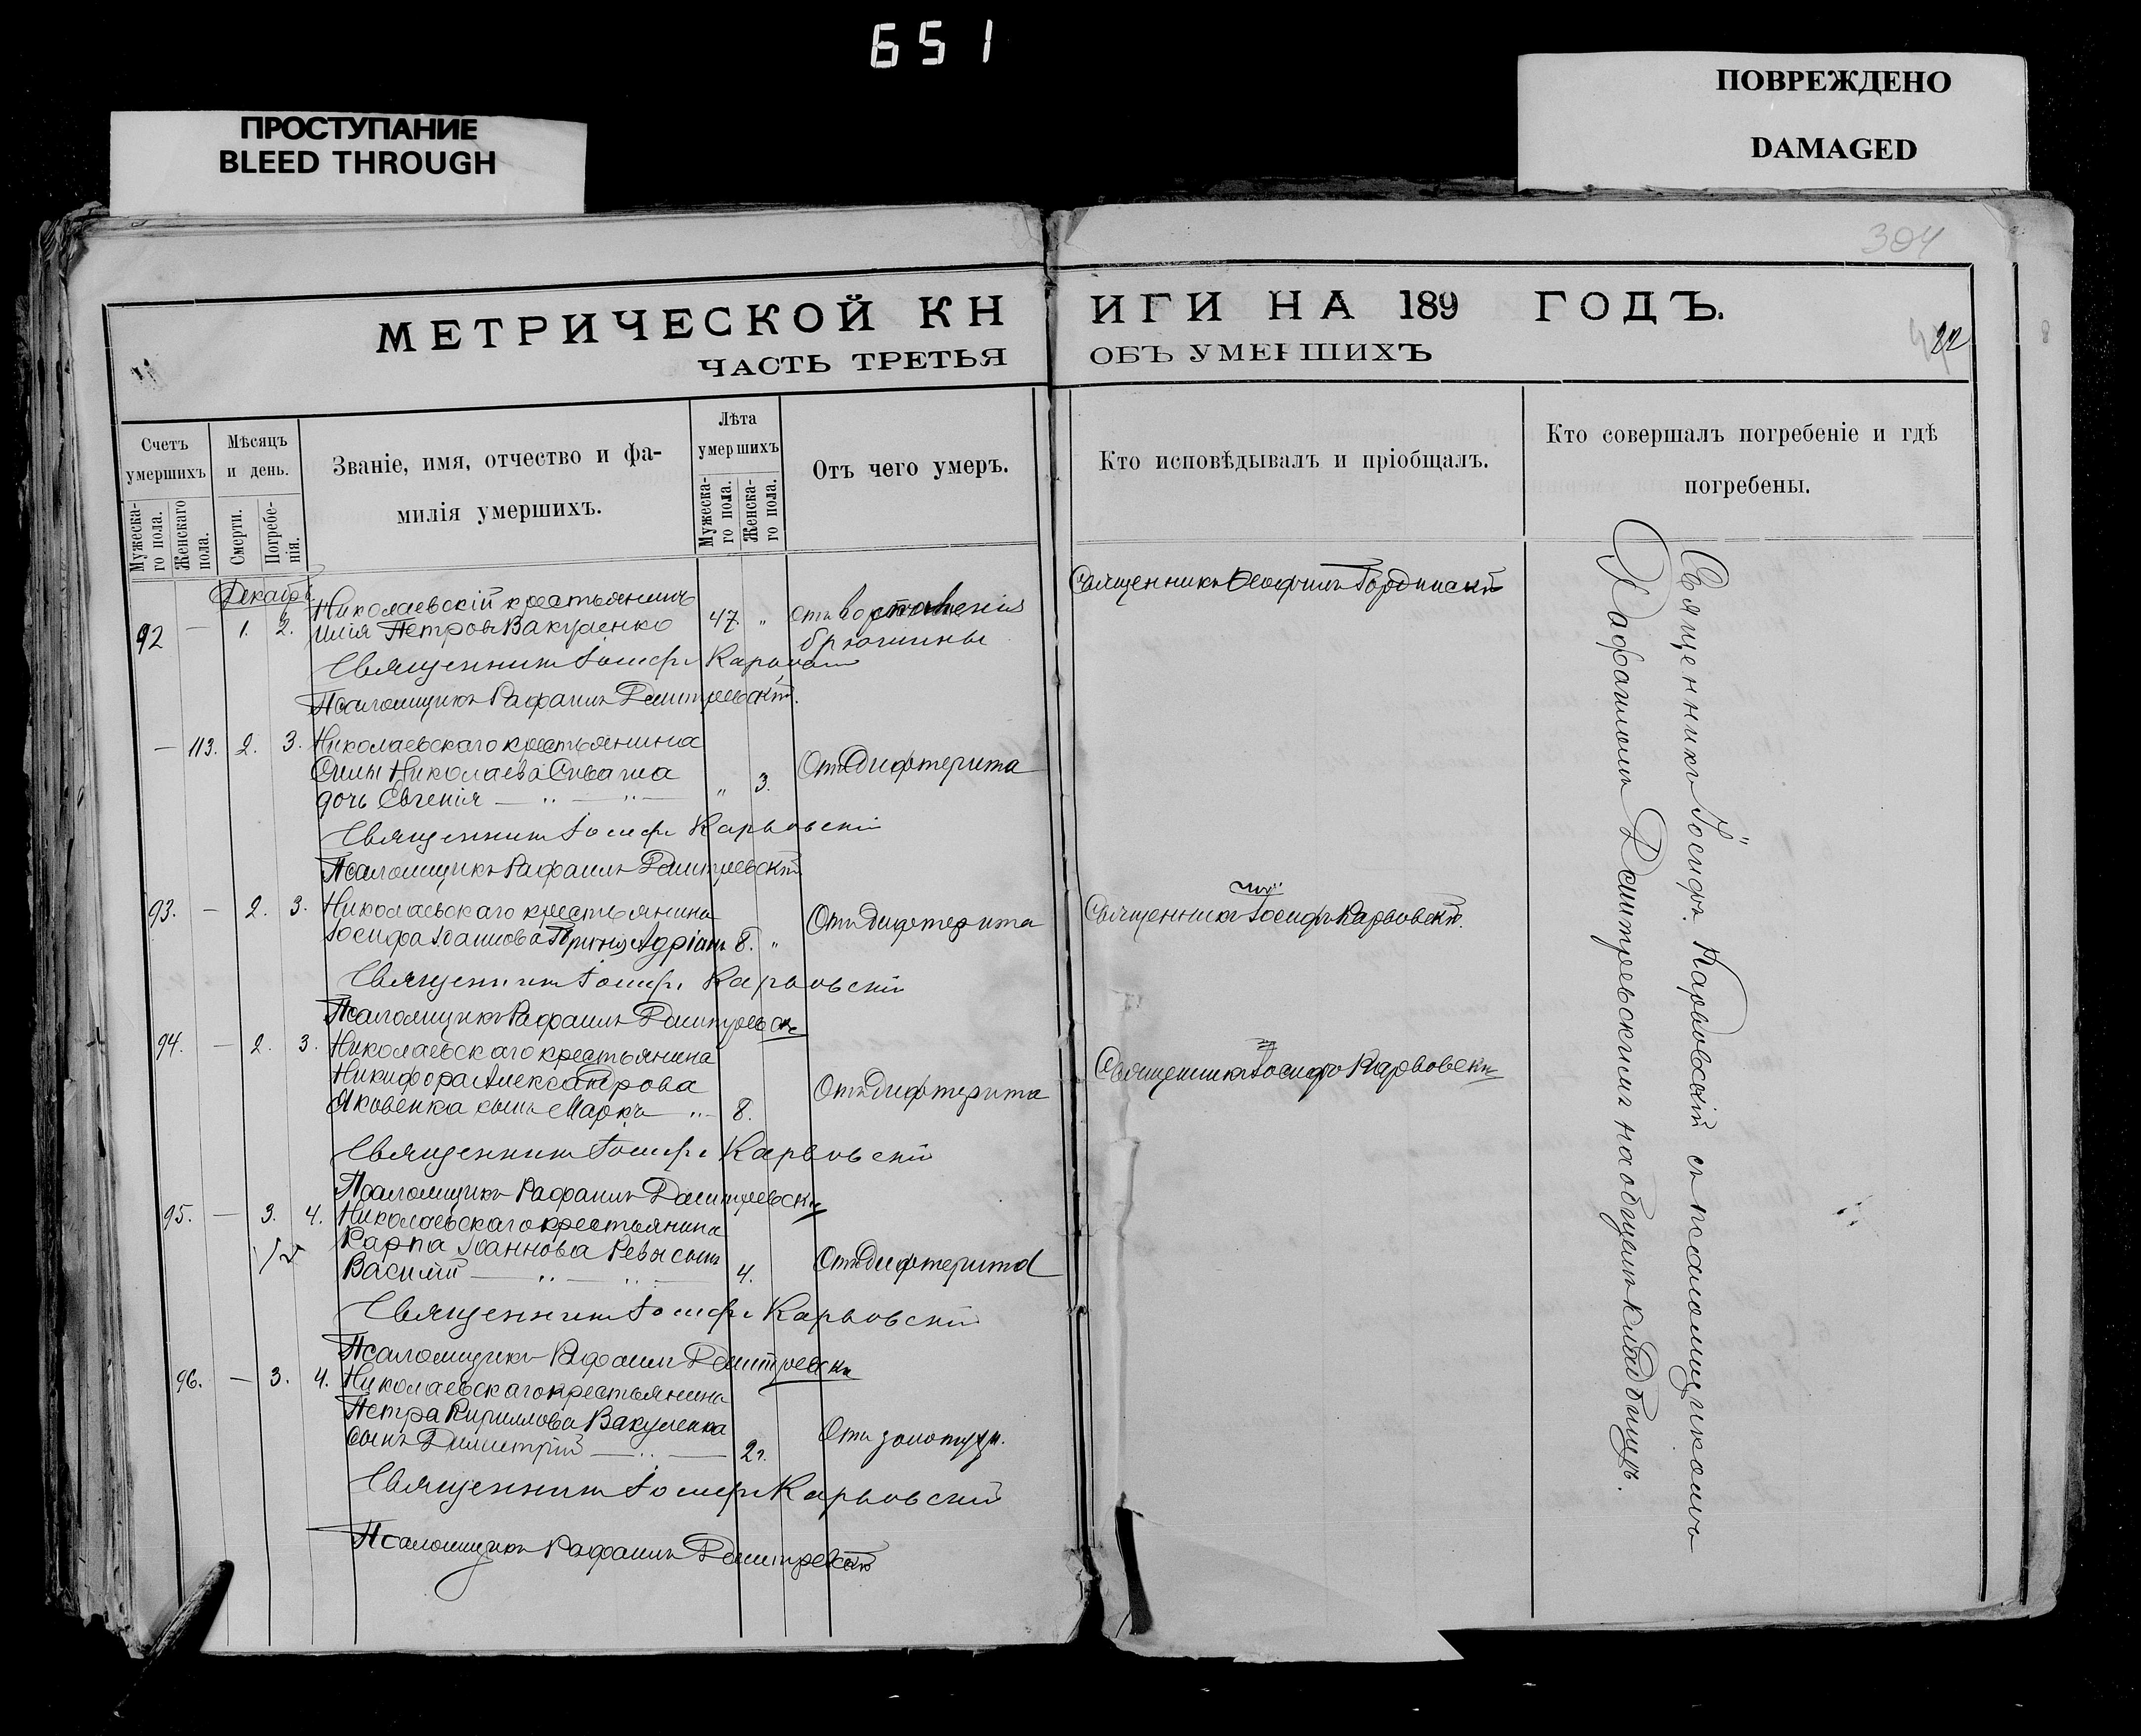 651
ПРОСТУПАНИЕ
BLEED THROUGH
ПОВРЕЖДЕНО
DAMAGED
304
МЕТРИЧЕСКОЙ КНИГИ НА 189 ГОДЪ.
ЧАСТЬ ТРЕТЬЯ ОБЪ УМЕРШИХЪ
22
Счетъ умершихъ
Мужеска-го пола.
Женскаго пола.
Мѣсяцъ и день.
Смерти.
Погребе-нія.
Званіе, имя, отчество и фа-
милія умершихъ.
Лѣта умершихъ
Мужеска-го пола.
Женска-го пола.
Отъ чего умеръ.
Кто исповѣдывалъ и пріобщалъ.
Кто совершалъ погребеніе и гдѣ
погребены.
Декабрь
92 — 1. 2. Николаевскій крестьянинъ
Илія Петровъ Вакуленко 47 " отъ воспаленія
брюшины
Священникъ Ѳеофилъ Гординскій
Священникъ Іосифъ Карвовскій
Псаломщикъ Рафаилъ Дмитревскій.
— 113. 2. 3. Николаевскаго крестьянина
Николаева Сиваша
дочь Евгенія — " — " — " 3. Отъ Дифтерита
Священникъ Іосифъ Карвовскій
Псаломщикъ Рафаилъ Дмитревскій
93. — 2. 3. Николаевскаго крестьянина
Іосифа Іоаннова Адріанъ 8. " Отъ Дифтерита
Священникъ Іосифъ Карвовскій.
Священникъ Іосифъ Карвовскій
Псаломщикъ Рафаилъ Дмитревскій
94. — 2. 3. Николаевскаго крестьянина
Никифора Александрова
Яковенка сынъ Маркъ — " — 8. Отъ Дифтерита
Священникъ Іосифъ Карвовскій
Священникъ Іосифъ Карвовскій
Псаломщикъ Рафаилъ Дмитревскій
95. — 3. 4. Николаевскаго крестьянина
Карпа Іоаннова Ревы сынъ
Василій — " — " — 4. Отъ Дифтерита
Священникъ Іосифъ Карвовскій
Псаломщикъ Рафаилъ Дмитревскій
96. — 3. 4. Николаевскаго крестьянина
Петра Кириллова Вакуленка
сынъ Димитрій — " — 2г. Отъ золотухи.
Священникъ Іосифъ Карвовскій
Псаломщикъ Рафаилъ Дмитревскій
Священникъ Іосифъ Карвовскій съ псаломщикомъ
Рафаиломъ Дмитревскимъ на общемъ кладбищѣ.